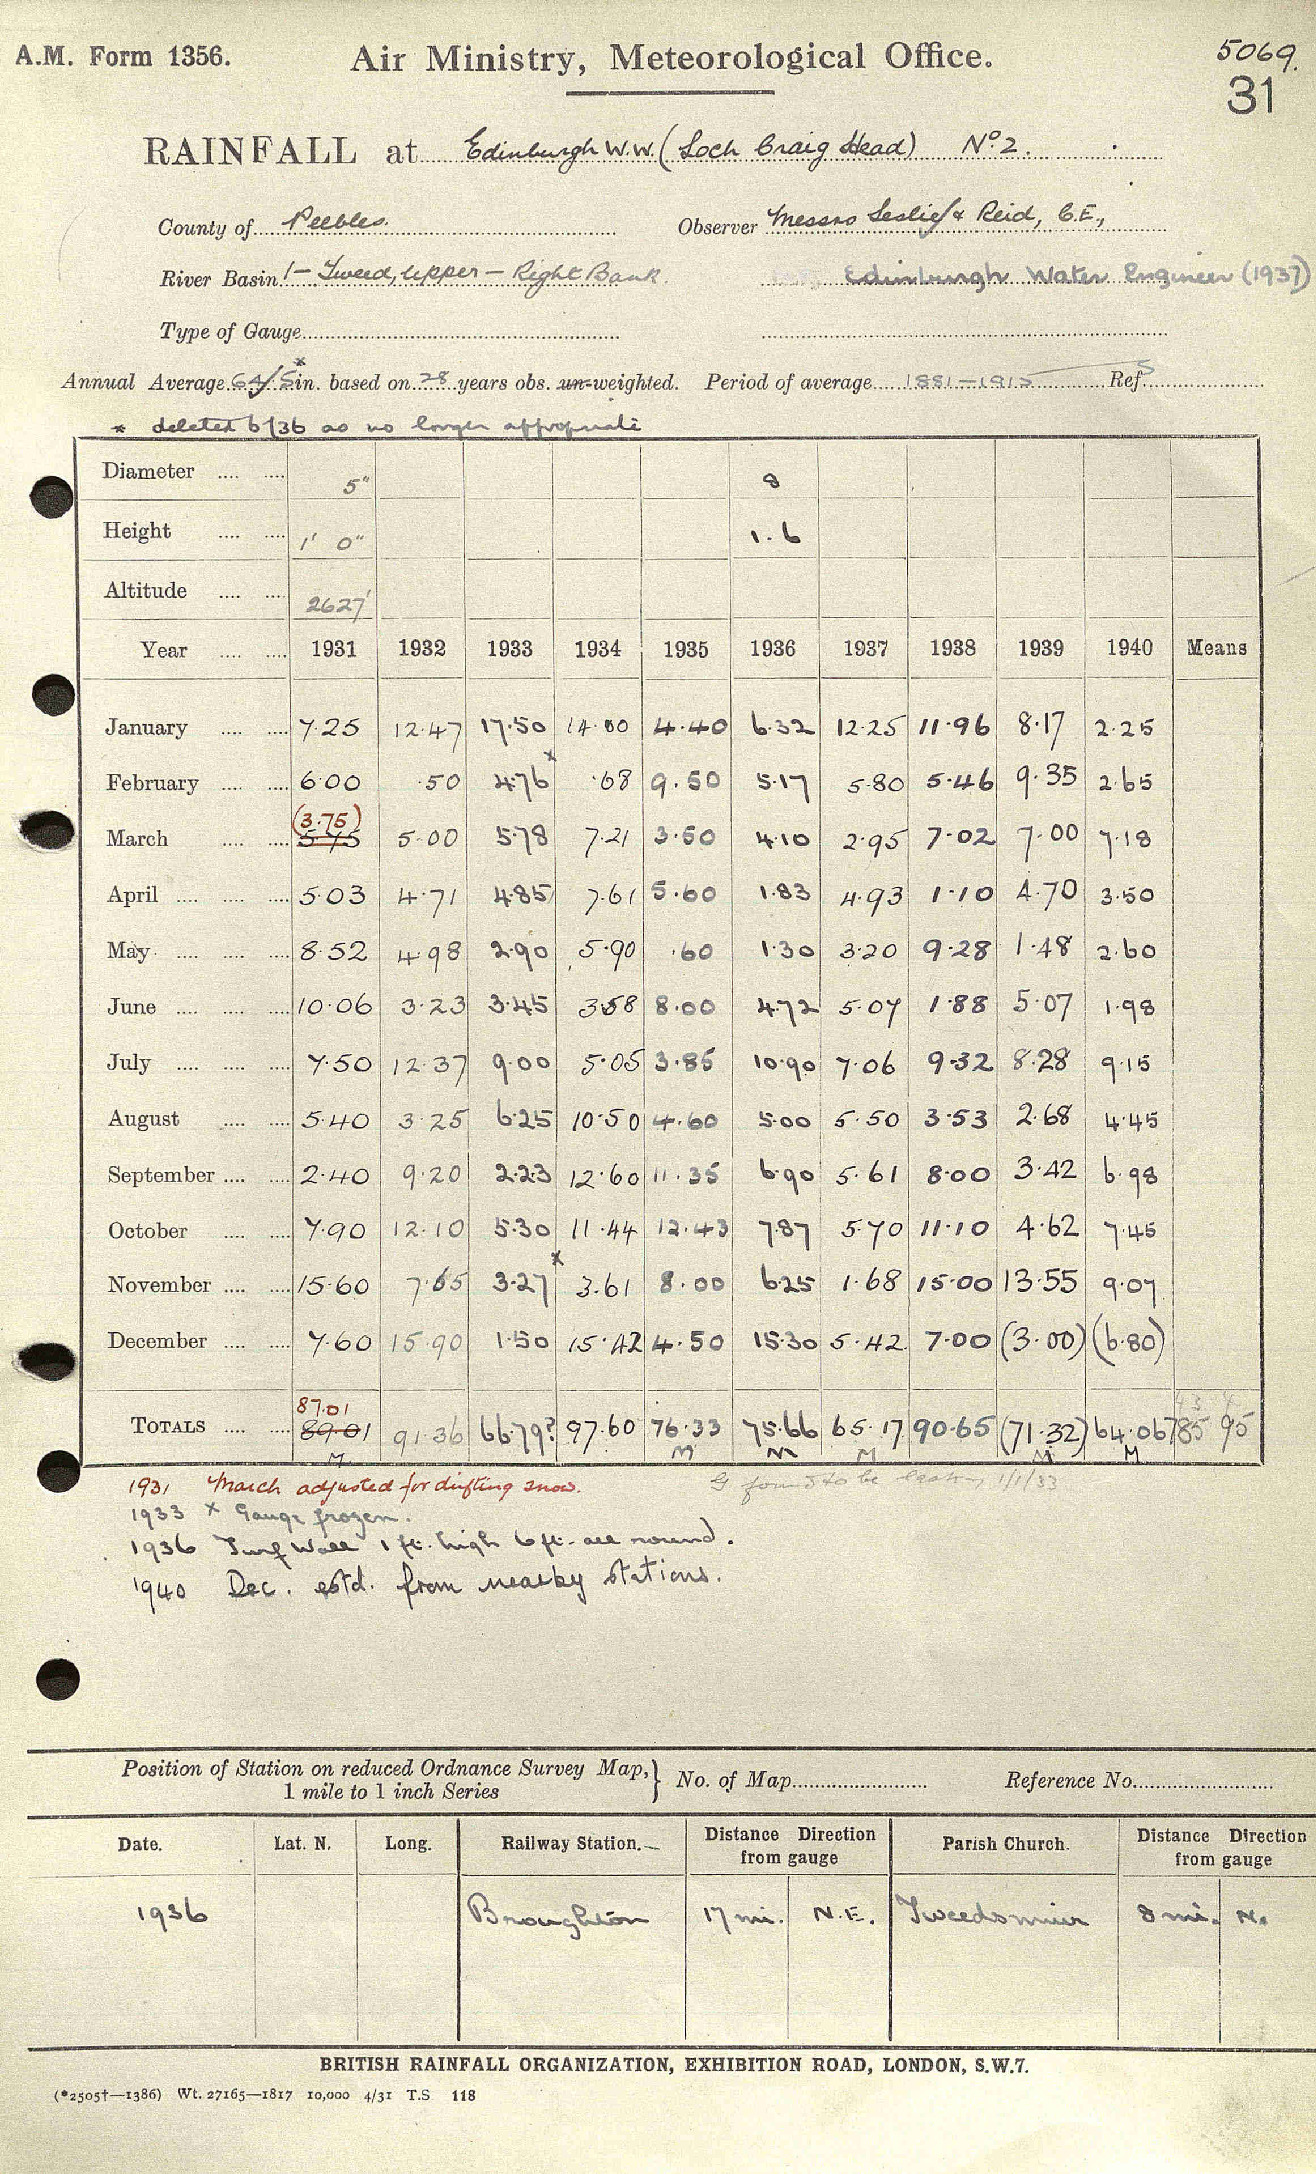 A.M. Form 1356. Air Ministry, Meteorological Office. 5069.
31
RAINFALL at Edinburgh W.W. (Loch Craig Head) No. 2.
County of Peebles. Observer Messrs Leslie & Reid, C.E.,
River Basin 1 – Tweed, Upper – Right Bank. Edinburgh Water Engineer (1937)
Type of Gauge
Annual Average 64.5* in. based on 28 years obs. un-weighted. Period of average 1881–1915 Ref S
* deleted 6/36 as no longer appropriate
Diameter 5" 8
Height 1' 0" 1.6
Altitude 2627'
Year 1931 1932 1933 1934 1935 1936 1937 1938 1939 1940 Means
January 7.25 12.47 17.50 14.00 4.40 6.32 12.25 11.96 8.17 2.25
February 6.00 .50 4.76x .68 9.50 5.17 5.80 5.46 9.35 2.65
March (3.75) 5.75 5.00 5.78 7.21 3.50 4.10 2.95 7.02 7.00 7.18
April 5.03 4.71 4.85 7.61 5.60 1.83 4.93 1.10 4.70 3.50
May 8.52 4.98 2.90 5.90 .60 1.30 3.20 9.28 1.48 2.60
June 10.06 3.23 3.45 3.58 8.00 4.72 5.07 1.88 5.07 1.98
July 7.50 12.37 9.00 5.05 3.85 10.90 7.06 9.32 8.28 9.15
August 5.40 3.25 6.25 10.50 4.60 5.00 5.50 3.53 2.68 4.45
September 2.40 9.20 2.23 12.60 11.35 6.90 5.61 8.00 3.42 6.98
October 7.90 12.10 5.30 11.44 12.43 7.87 5.70 11.10 4.62 7.45
November 15.60 7.65 3.27x 3.61 8.00 6.25 1.68 15.00 13.55 9.07
December 7.60 15.90 1.50 15.42 4.50 15.30 5.42 7.00 (3.00) (6.80)
Totals 87.01 89.01 91.36 66.79? 97.60 76.33 75.66 65.17 90.65 (71.32) 64.06 785 95
M M M M M M
1931 March adjusted for drifting snow. G found to be leaking 1/1/33
1933 x Gauge frozen.
1936 Turf Wall 1 ft. high 6 ft. all round.
1940 Dec. estd. from nearby stations.
Position of Station on reduced Ordnance Survey Map, 1 mile to 1 inch Series } No. of Map Reference No.
Date. Lat. N. Long. Railway Station. Distance Direction from gauge Parish Church. Distance Direction from gauge
1936 Broughton 17 mi. N.E. Tweedsmuir 8 mi. N.
BRITISH RAINFALL ORGANIZATION, EXHIBITION ROAD, LONDON, S.W.7.
(*2505†—1386) Wt. 27165—1817 10,000 4/31 T.S 118